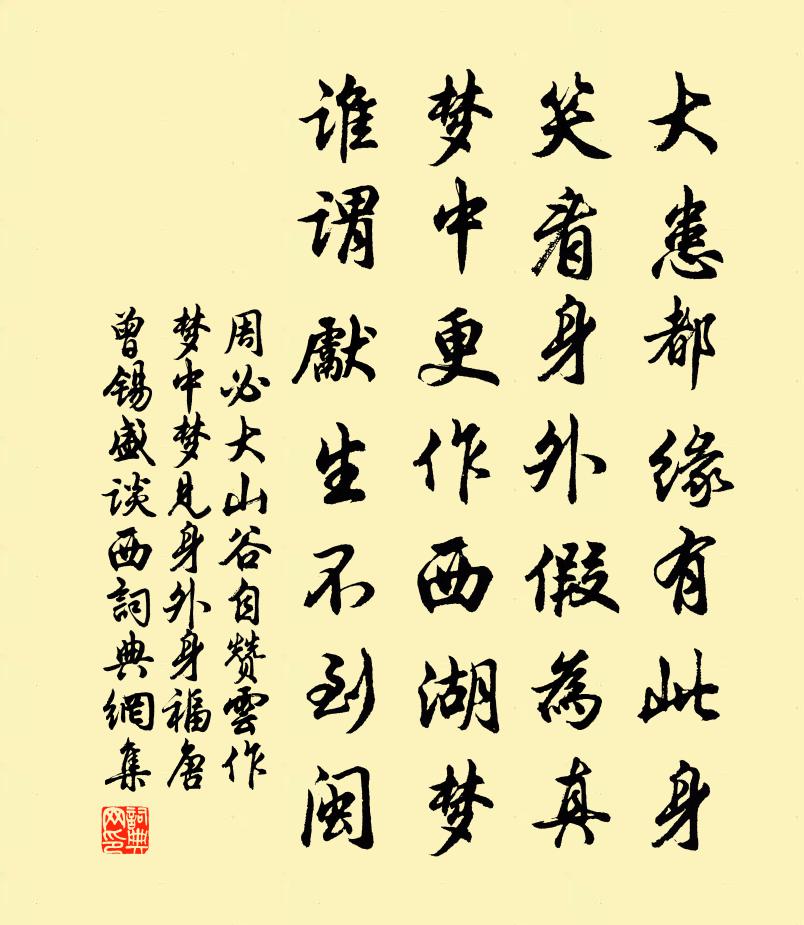 大患都缘有此身
笑看身外假為真
梦中更作西湖梦
谁谓獻生不到闽
周必大山谷自赞雲作
梦中梦見身外身福唐
曾锡盛談西詞典網集
詞典网印